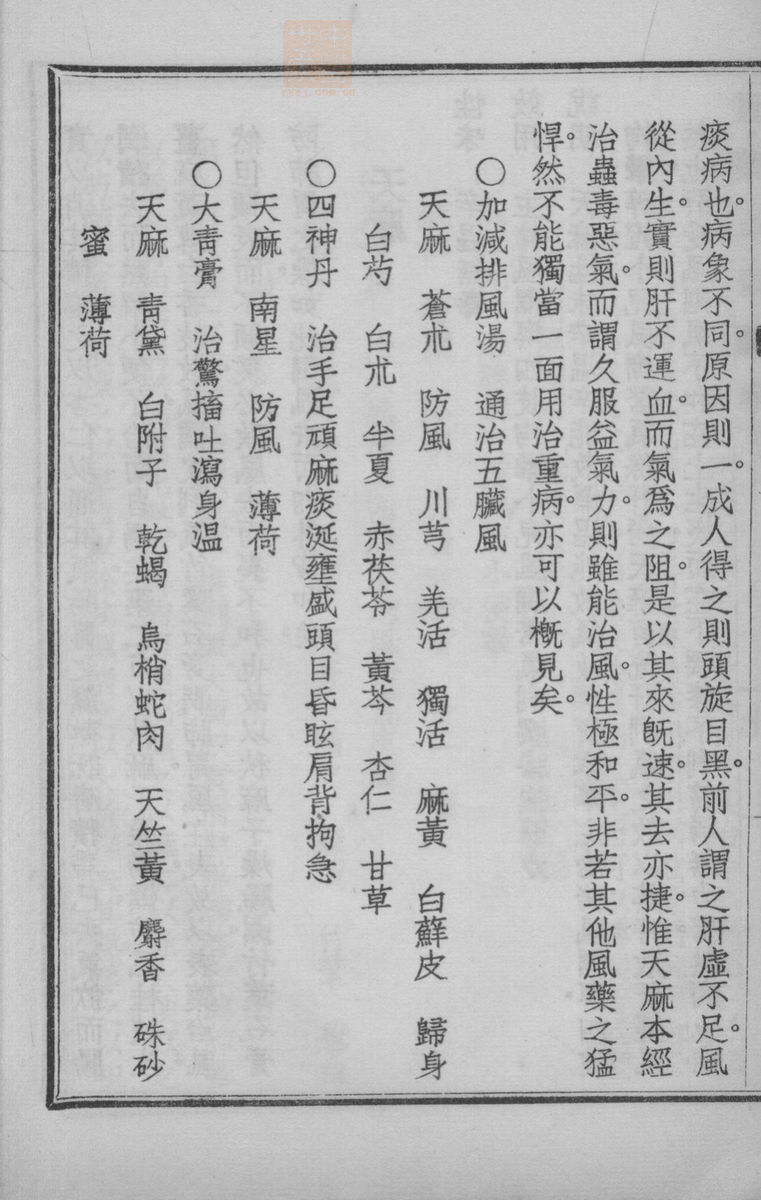 痰病也。病象不同。原因則一。成人得之則頭旋目黑。前人謂之肝虛不足。風
從內生。實則肝不運血。而氣爲之阻。是以其來旣速。其去亦捷。惟天麻本經
治蟲毒惡氣。而謂久服益氣力。則雖能治風。性極和平。非若其他風藥之猛
悍。然不能獨當一面。用治重病。亦可以槪見矣。
○加減排風湯 通治五臟風
天麻 蒼朮 防風 川芎 羌活 獨活 麻黃 白蘚皮 歸身
白芍 白朮 半夏 赤茯苓 黃芩 杏仁 甘草
○四神丹 治手足頑麻痰涎壅盛頭目昏眩肩背拘急
天麻 南星 防風 薄荷
○大靑膏 治驚搐吐瀉身温
天麻 靑黛 白附子 乾蝎 烏梢蛇肉 天竺黃 麝香 硃砂
蜜 薄荷